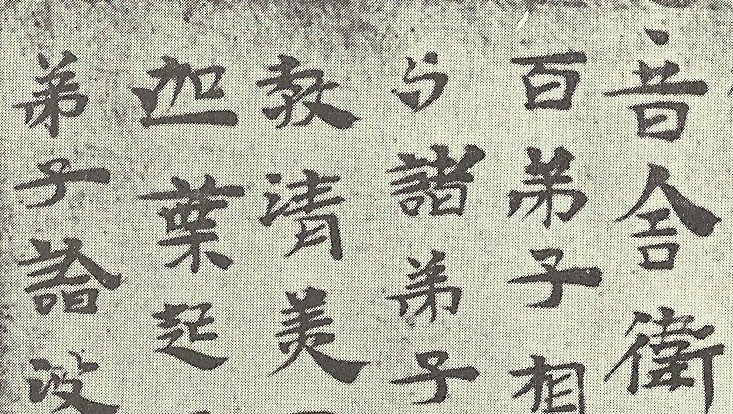 昔舍衛
百弟子相
与諸弟子
教清美
迦葉
弟子詣波